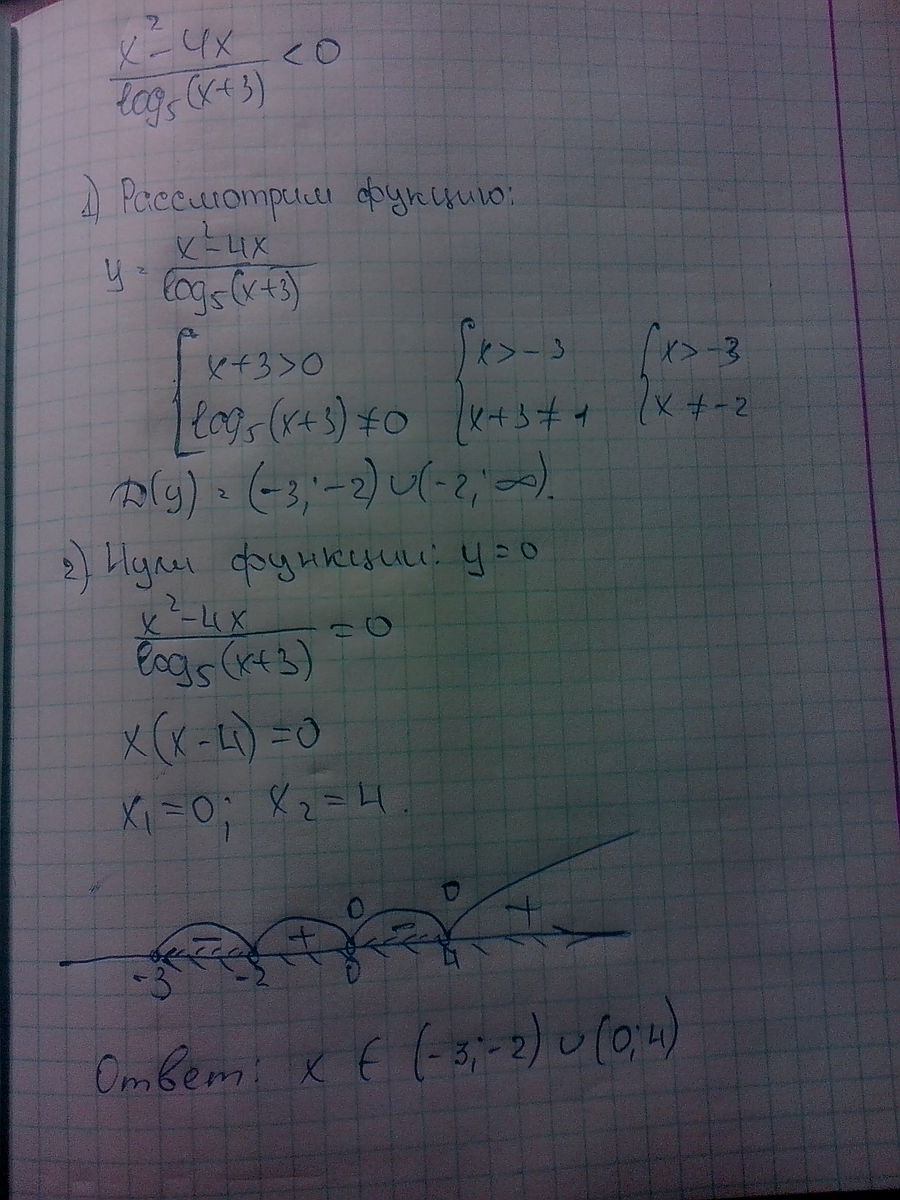 x² - 4x / log₅(x+3) < 0
1) Рассмотрим функцию:
y = x² - 4x / log₅(x+3)
{ x+3>0 { x>-3 { x>-3
{ log₅(x+3) ≠ 0 { x+3 ≠ 1 { x ≠ -2
D(y) = (-3; -2) ∪ (-2; ∞).
2) Нули функции: y = 0
x² - 4x / log₅(x+3) = 0
x(x-4) = 0
x₁ = 0; x₂ = 4.
0 0
- + - +
-3 -2 0 4
Ответ: x ∈ (-3; -2) ∪ (0; 4)